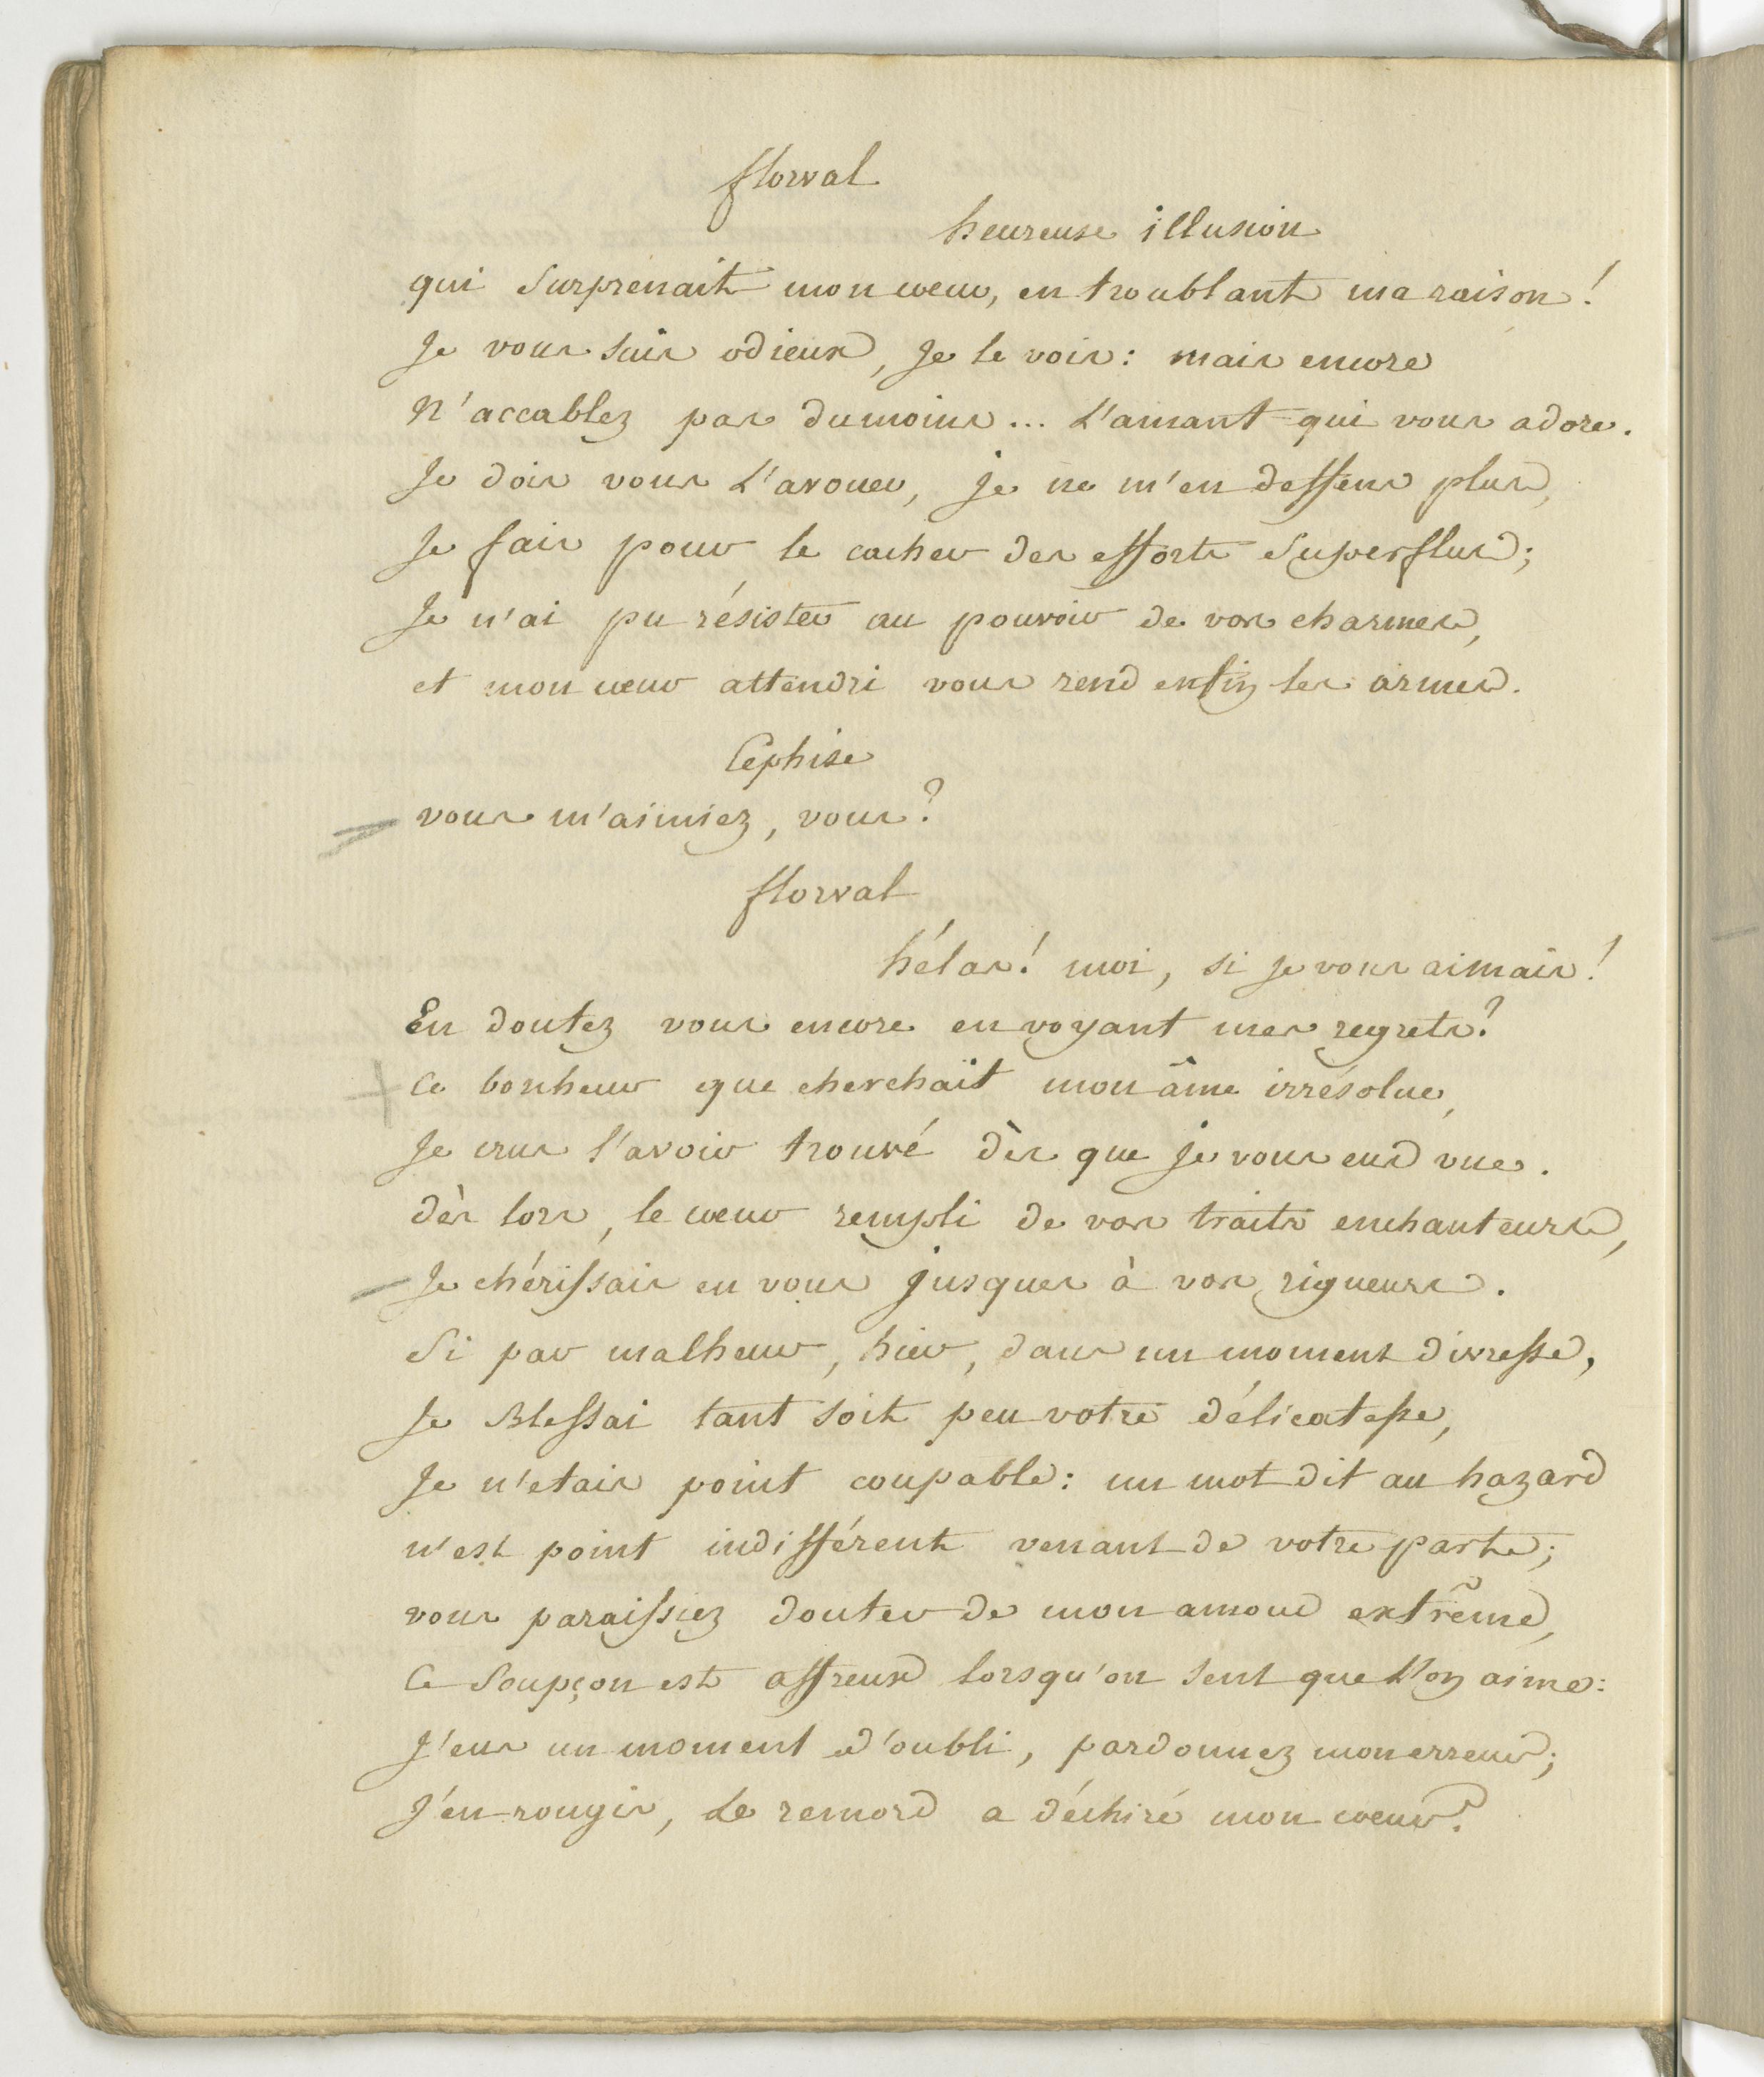 florval
heureuse illusion
qui surprenait mon coeur, en troublant ma raison!
Je vous suis odieux, je le vois: mais encore
N'accablez pas dumoins... l'amant qui vous adore.
Je dois vous l'avouer, je ne m'en deffens plus,
Je fais pour le cacher des efforts superflus;
Je n'ai pu résister au pouvoir de vos charmes,
et mon coeur attendri vous rend enfin les armes.
Cephise
vous m'aimiez, vous?
florval
hélas! moi, si je vous aimais!
En doutez vous encore en voyant mes regrets?
Ce bonheur que cherchait mon âme irrésolue,
Je crus l'avoir trouvé dès que je vous eus vue.
dès lors, le coeur rempli de vos traits enchanteurs,
Je chérissais en vous jusques à vos rigueurs.
Si par malheur, hier, dans un moment divresse,
Je Blessai tant soit peu votre délicatesse,
Je n'etais point coupable: un mot dit au hazard
n'est point indifférent venant de votre part;
vous paraissiez douter de mon amour extrême,
Ce soupçon est affreux lorsqu'on sent que l'on aime:
J'eus un moment d'oubli, pardonnez mon erreur;
J'en rougis, le remord a déchiré mon coeur?